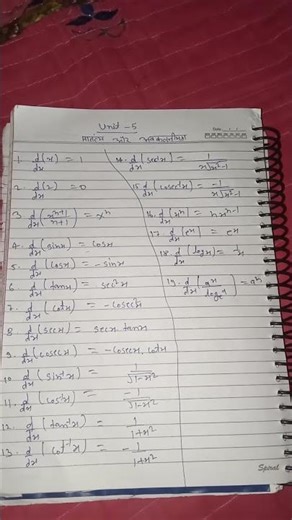 Unit - 5
सातत्य और अवकलनीयता
1. d/dx (x) = 1
2. d/dx (2) = 0
3. d/dx (x^(n+1)/(n+1)) = x^n
4. d/dx (sinx) = cosx
5. d/dx (cosx) = -sinx
6. d/dx (tanx) = sec²x
7. d/dx (cotx) = -cosec²x
8. d/dx (secx) = secx.tanx
9. d/dx (cosecx) = -cosecx.cotx
10. d/dx (sin⁻¹x) = 1/√(1-x²)
11. d/dx (cos⁻¹x) = -1/√(1-x²)
12. d/dx (tan⁻¹x) = 1/(1+x²)
13. d/dx (cot⁻¹x) = -1/(1+x²)
14. d/dx (sec⁻¹x) = 1/(x√(x²-1))
15. d/dx (cosec⁻¹x) = -1/(x√(x²-1))
16. d/dx (x^n) = nx^(n-1)
17. d/dx (e^x) = e^x
18. d/dx (logx) = 1/x
19. d/dx (a^x/log a) = a^x
Spiral